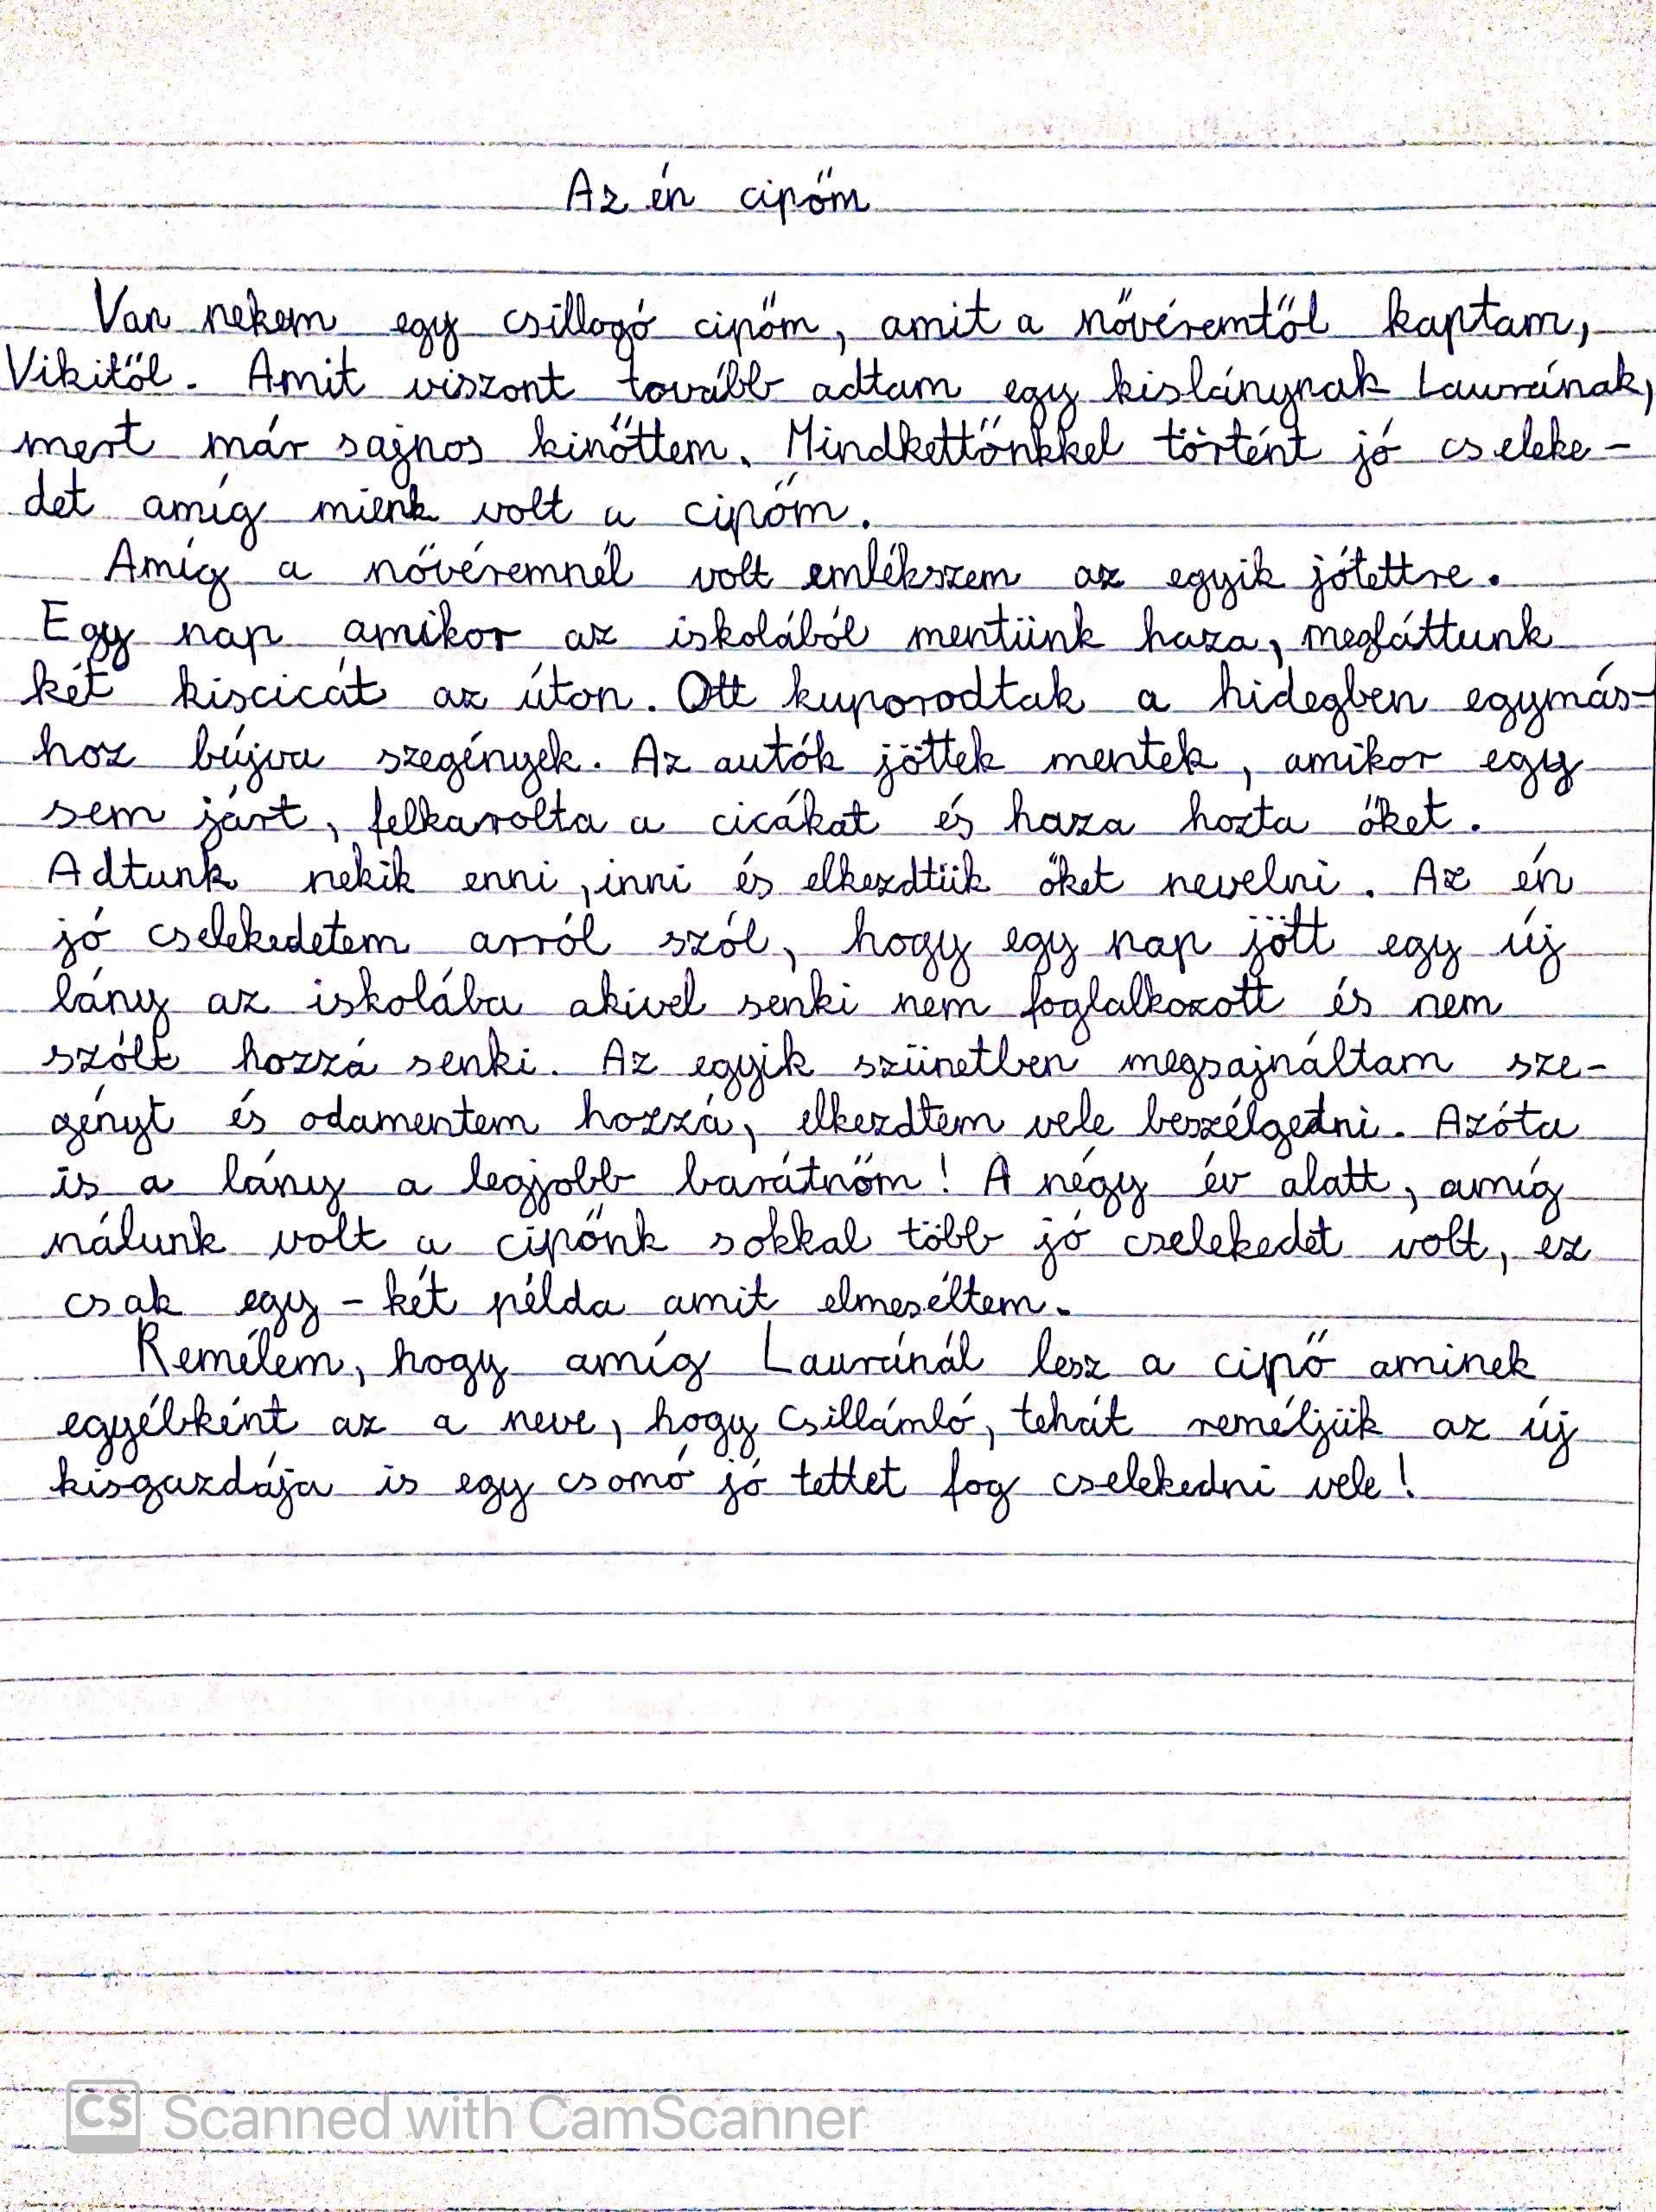 Az én cipőm
Van nekem egy csillogó cipőm, amit a nővéremtől kaptam,
Vikitől. Amit viszont tovább adtam egy kislánynak Laurának,
mert már sajnos kinőttem. Mindkettőnkkel történt jó cseleke-
det amíg mienk volt a cipőm.
Amíg a nővéremnél volt emlékszem az egyik jótettre.
Egy nap amikor az iskolából mentünk haza, megláttunk
két kiscicát az úton. Ott kuporodtak a hidegben egymás-
hoz bújva szegények. Az autók jöttek mentek, amikor egy
sem járt, felkarolta a cicákat és haza hozta őket.
Adtunk nekik enni, inni és elkezdtük őket nevelni. Az én
jó cselekedetem arról szól, hogy egy nap jött egy új
lány az iskolába akivel senki nem foglalkozott és nem
szólt hozzá senki. Az egyik szünetben megsajnáltam sze-
gényt és odamentem hozzá, elkezdtem vele beszélgetni. Azóta
is a lány a legjobb barátnőm! A négy év alatt, amíg
nálunk volt a cipőnk sokkal több jó cselekedet volt, ez
csak egy-két példa amit elmeséltem.
Remélem, hogy amíg Lauránál lesz a cipő aminek
egyébként az a neve, hogy Csillámló, tehát reméljük az új
kisgazdája is egy csomó jó tettet fog cselekedni vele!
CS Scanned with CamScanner